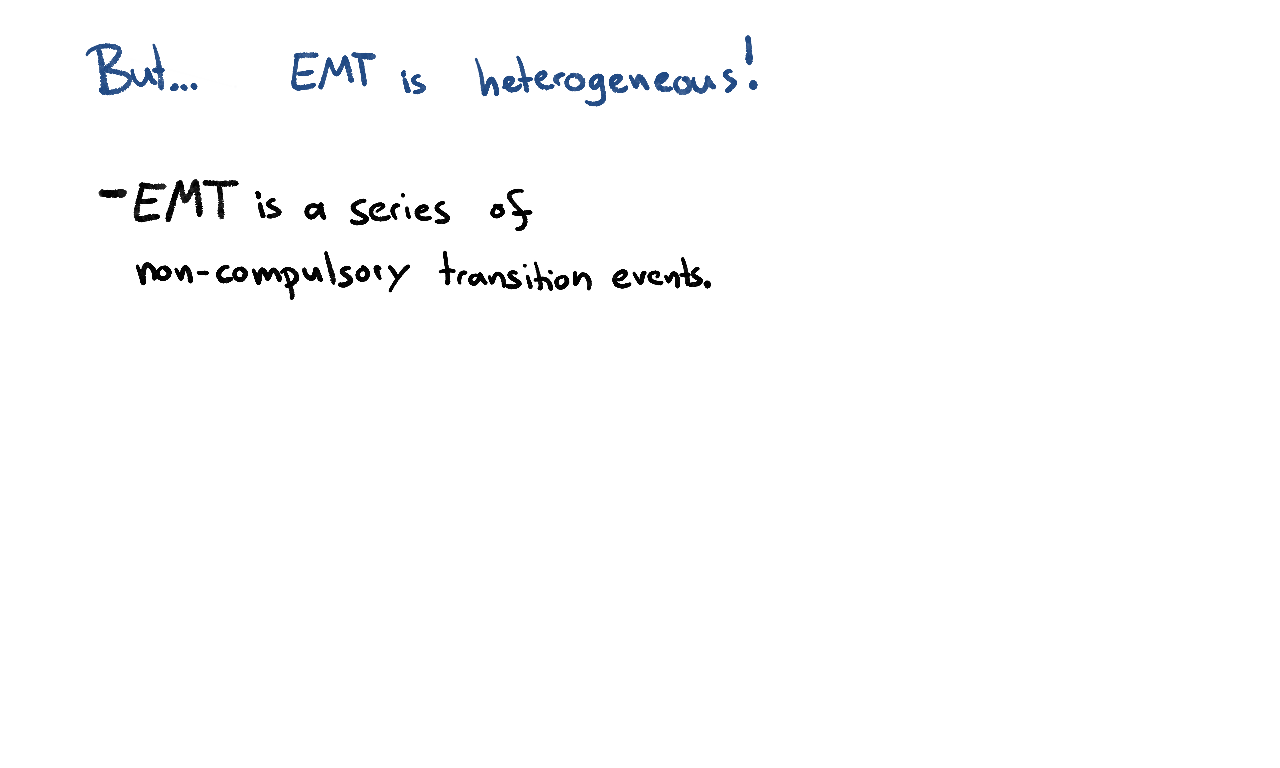 But... EMT is heterogeneous!
- EMT is a series of
non-compulsory transition events.